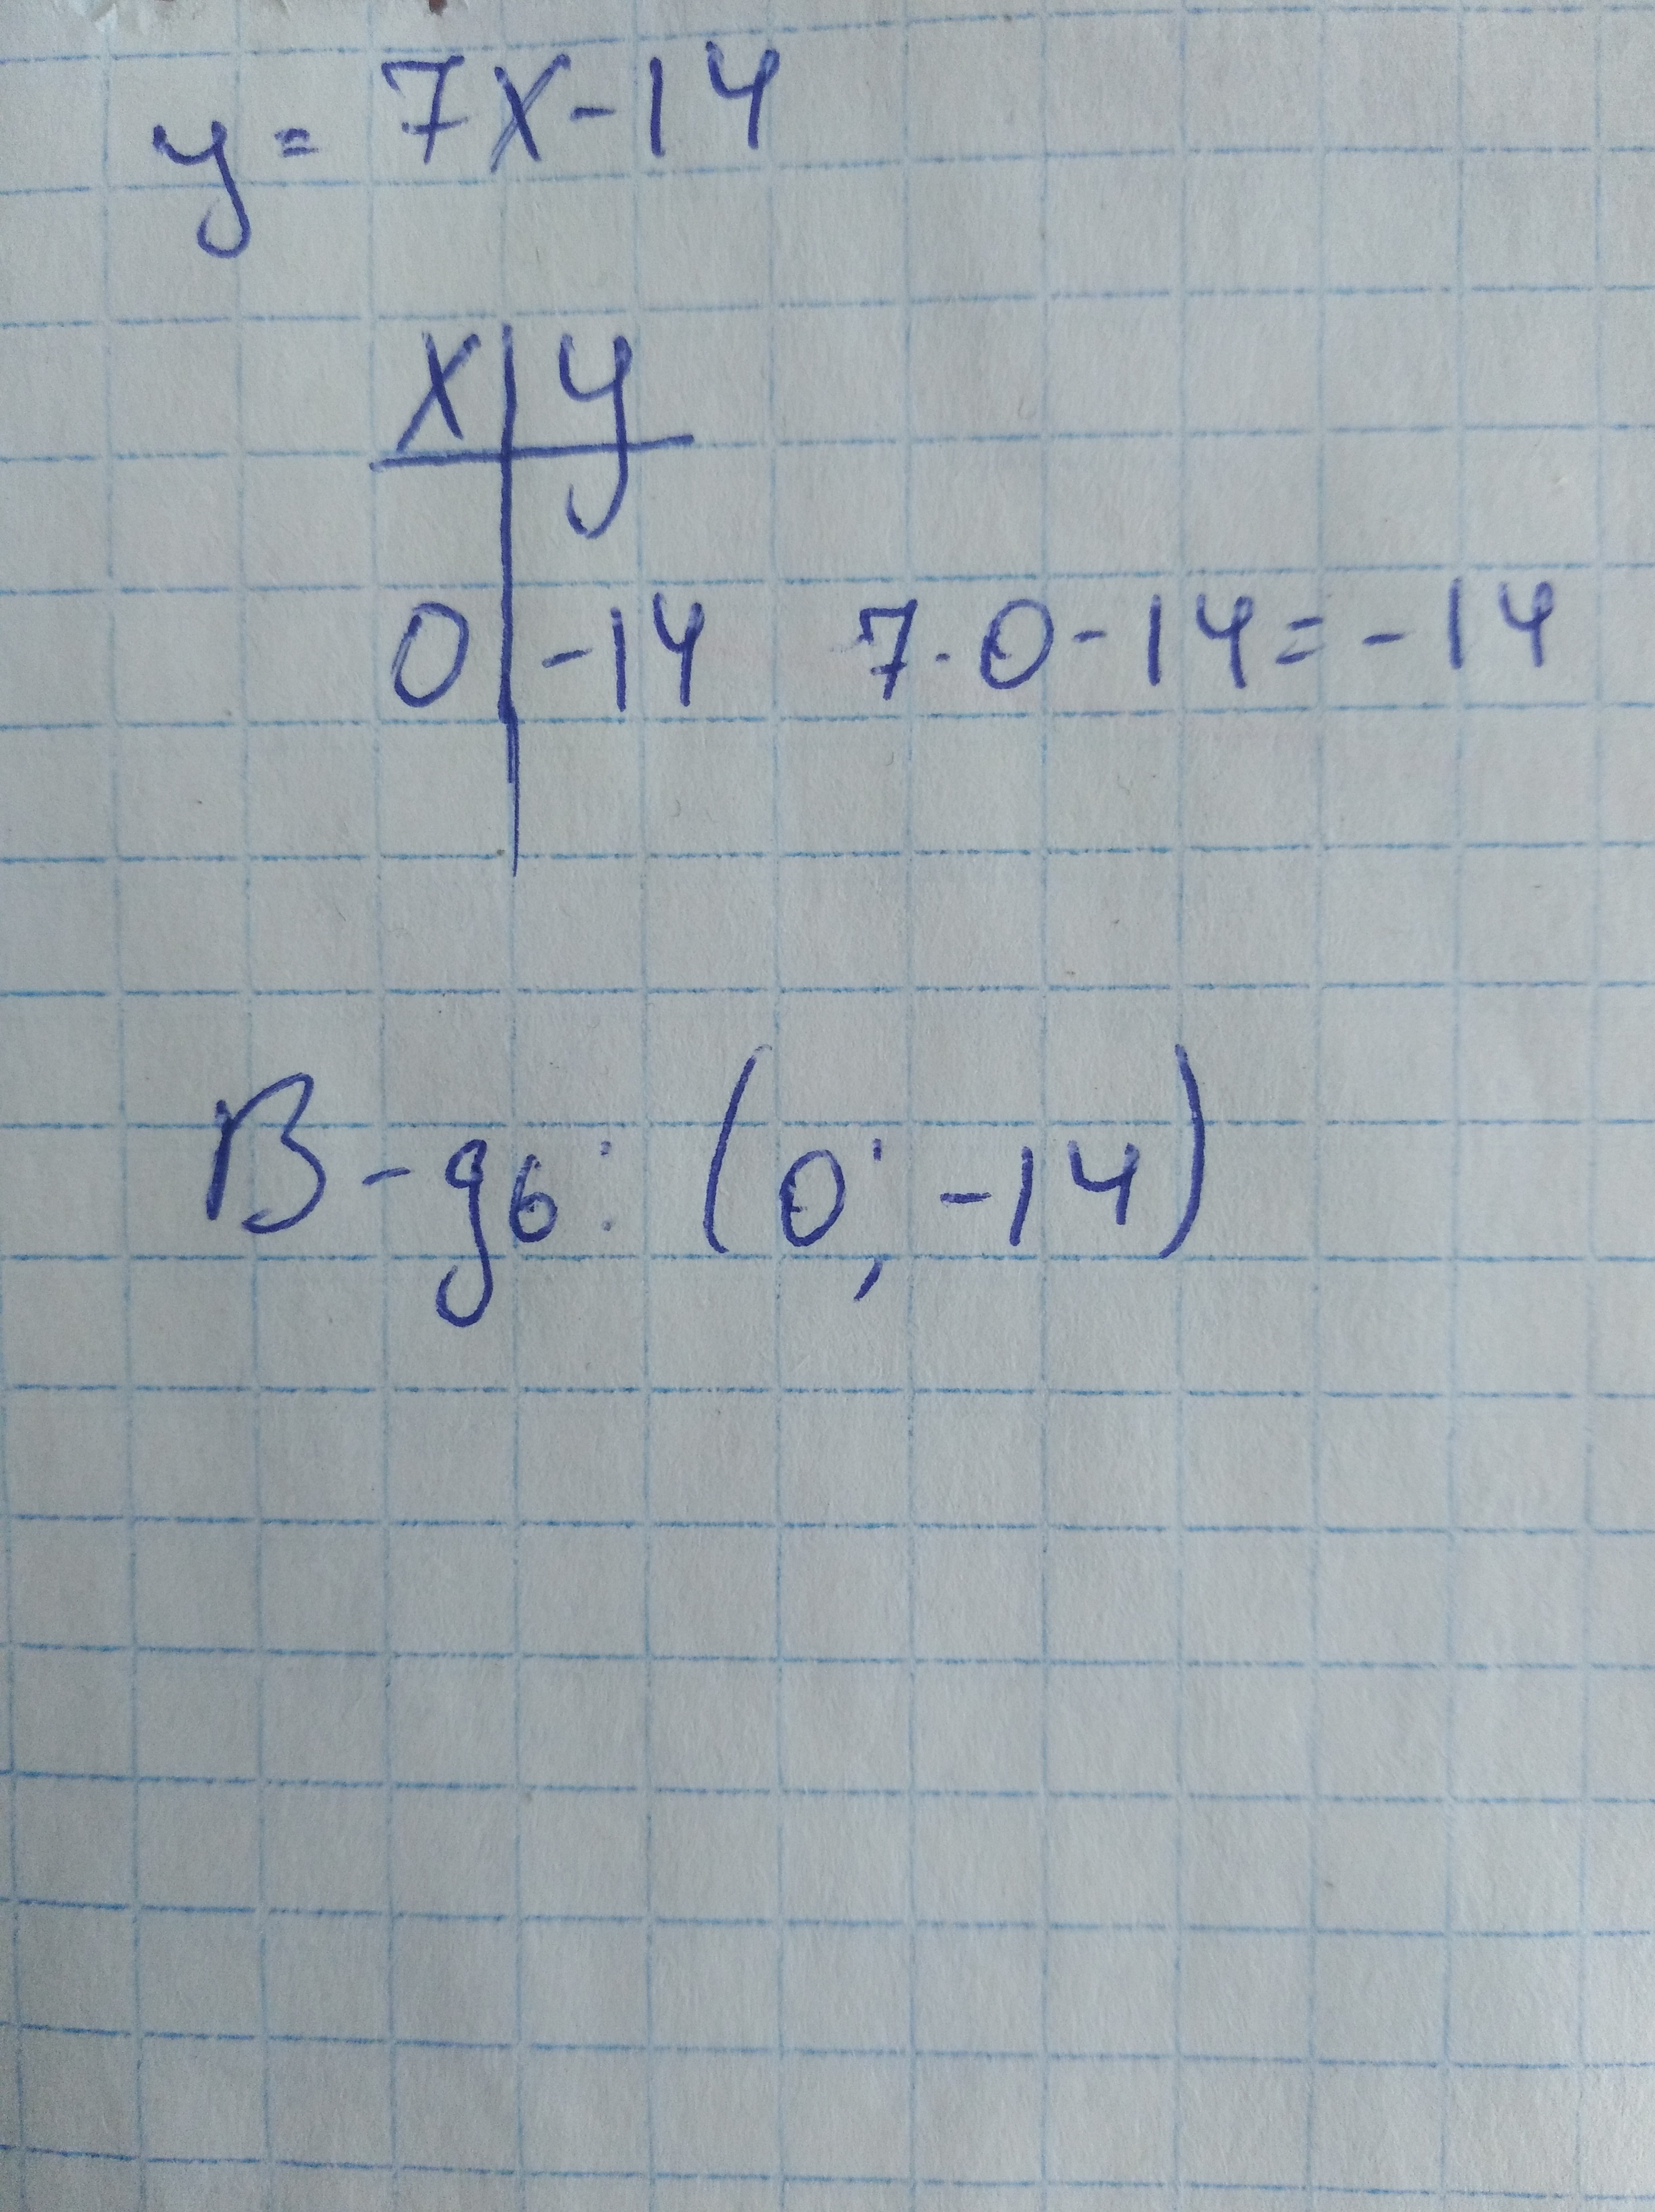 y = 7x - 14
x | y
0 | -14 7 · 0 - 14 = -14
В-дь: (0; -14)